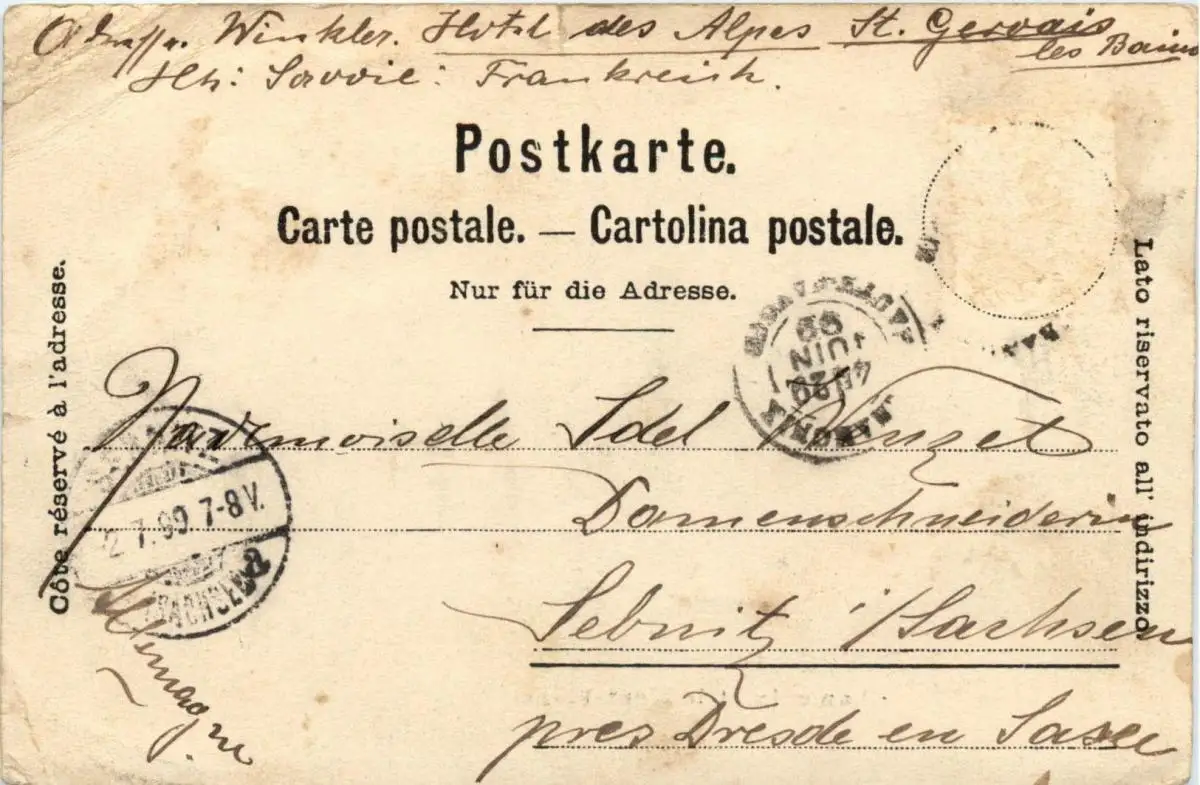 Adresse: Winkler. Hotel des Alpes St. Gervais
les Bains
Hte: Savoie: Frankreich.
Postkarte.
Carte postale. — Cartolina postale.
Nur für die Adresse.
Côté réservé à l'adresse.
Lato riservato all' indirizzo
HAUTE-SAVOIE
4E 29
JUIN
99
Mademoiselle Idel
Damenschneiderin
Sebnitz i/Sachsen
pres Dresde en Saxe
Allemagne
2.7.99. 7-8 V.
(SACHSEN)